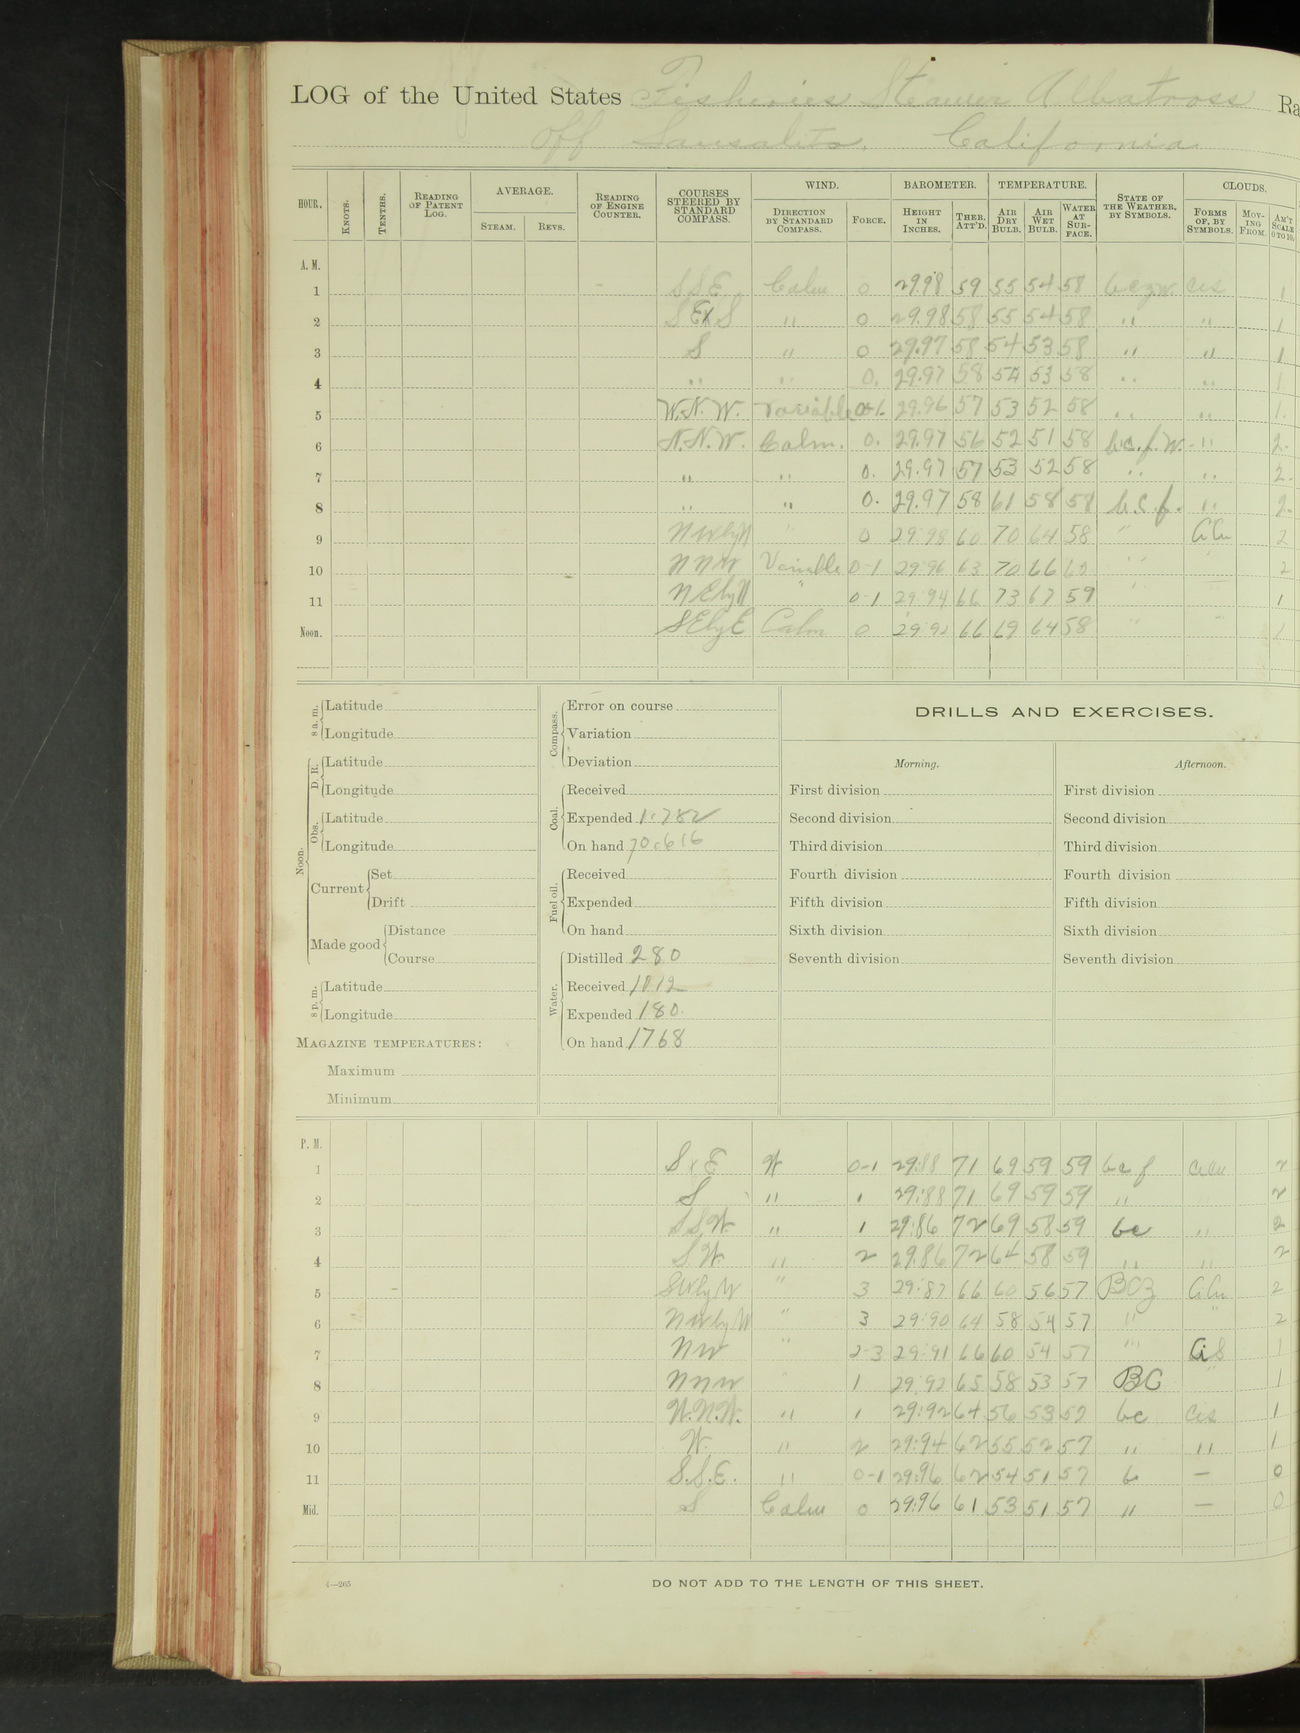 LOG of the United States Fisheries Steamer Albatross Ra
off Sausalito, California
HOUR. KNOTS. TENTHS. READING OF PATENT LOG. AVERAGE. STEAM. REVS. READING OF ENGINE COUNTER. COURSES STEERED BY STANDARD COMPASS. WIND. DIRECTION BY STANDARD COMPASS. FORCE. BAROMETER. HEIGHT IN INCHES. THER. ATT'D. TEMPERATURE. AIR DRY BULB. AIR WET BULB. WATER AT SURFACE. STATE OF THE WEATHER, BY SYMBOLS. CLOUDS. FORMS OF, BY SYMBOLS. MOVING FROM. AM'T SCALE 0 TO 10.
A. M.
1 SSE Calm 0 29.98 59 55 54 58 bczw cis 1
2 SExS " 0 29.98 58 55 54 58 " " 1
3 S " 0 29.97 58 54 53 58 " " 1
4 " " 0. 29.97 58 54 53 58 " " 1
5 W.N.W. Variable 0-1. 29.96 57 53 52 58 " " 1.
6 N.N.W. Calm. 0. 29.97 56 52 51 58 b.c.f.w. " 2.
7 " " 0. 29.97 57 53 52 58 " " 2.
8 " " 0. 29.97 58 61 58 58 b.c.f. " 2.
9 NWbyN " 0 29.98 60 70 64 58 " CiCu 2
10 NNW Variable 0-1 29.96 63 70 66 " 2
11 NEbyN " 0-1 29.94 66 73 67 59 " 1
Noon. SEbyE Calm 0 29.92 66 69 64 58 " " 1
8 a. m. Latitude
Longitude
Noon. D. R. Latitude
Longitude
Obs. Latitude
Longitude
Current Set
Drift
Made good Distance
Course
8 p. m. Latitude
Longitude
MAGAZINE TEMPERATURES:
Maximum
Minimum
Compass. Error on course
Variation
Deviation
Coal. Received
Expended 1.782
On hand 70.616
Fuel oil. Received
Expended
On hand
Water. Distilled 280
Received 1012
Expended 180.
On hand 1768
DRILLS AND EXERCISES.
Morning.
First division
Second division
Third division
Fourth division
Fifth division
Sixth division
Seventh division
Afternoon.
First division
Second division
Third division
Fourth division
Fifth division
Sixth division
Seventh division
P. M.
1 SxE W 0-1 29.88 71 69 59 59 bcf cicu 2
2 S " 1 29.88 71 69 59 59 " 2
3 SSW " 1 29.86 72 69 58 59 bc " 2
4 S.W. " 2 29.86 72 64 58 59 " " 2
5 SWbyW " 3 29.87 66 60 56 57 BCZ CiCu 2
6 NWbyW " 3 29.90 64 58 54 57 " " 2
7 NW " 2-3 29.91 66 60 54 57 " CiS 1
8 NNW " 1 29.92 65 58 53 57 BC " 1
9 W.N.W. " 1 29.92 64 56 53 57 bc cis 1
10 W. " 2 29.94 62 55 52 57 " " 1
11 S.S.E. " 0-1 29.96 62 54 51 57 b — 0
Mid. S Calm 0 29.96 61 53 51 57 " — 0
4—265
DO NOT ADD TO THE LENGTH OF THIS SHEET.